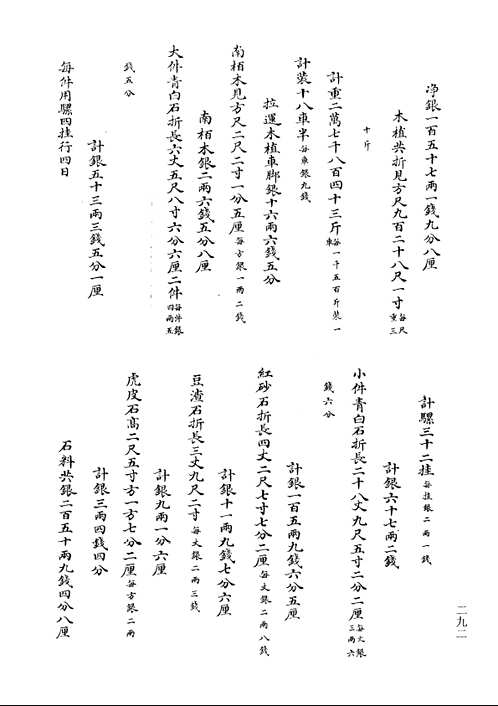 淨銀一百五十七兩一錢九分八厘
木植共折見方尺九百二十八尺一寸每尺重三
十斤
計重二萬七千八百四十三斤每一千五百斤裝一車
計裝十八車半每車銀九錢
拉運木植車腳銀十六兩六錢五分
南栢木見方尺二尺二寸一分五厘每方銀一兩二錢
南栢木銀二兩六錢五分八厘
大件青白石折長六丈五尺八寸六分六厘二件每件銀四兩五
錢五分
計銀五十三兩三錢五分一厘
每件用騾四挂行四日
計騾三十二挂每挂銀二兩一錢
計銀六十七兩二錢
小件青白石折長二十八丈九尺五寸二分二厘每丈銀三兩六
錢六分
計銀一百五兩九錢六分五厘
紅砂石折長四丈二尺七寸七分二厘每丈銀二兩八錢
計銀十一兩九錢七分六厘
豆渣石折長三丈九尺二寸每丈銀二兩三錢
計銀九兩一分六厘
虎皮石高二尺五寸方一方七分二厘每方銀二兩
計銀三兩四錢四分
石料共銀二百五十兩九錢四分八厘
二九二